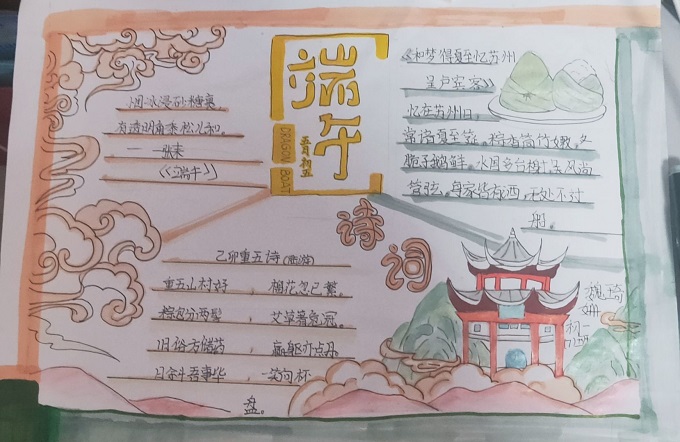 端午
DRAGON BOAT
五月初五
诗词
烟水浸石糖裹
有透明角黍松儿和。
——张耒
《端午》
《和梦得夏至忆苏州
呈卢宾客》
忆在苏州日,
常谙夏至筵。粽香筒竹嫩,
脆子鹅鲜。水国多台榭,
管弦,每家皆有酒,无处不过
船。
乙卯重五诗(陆游)
重五山村好,榴花忽已繁。
粽包分两髻,艾草著危冠。
旧俗方储药,羸躯亦点丹。
日斜吾事毕,一笑向杯
盘。
魏琦
姗
初一